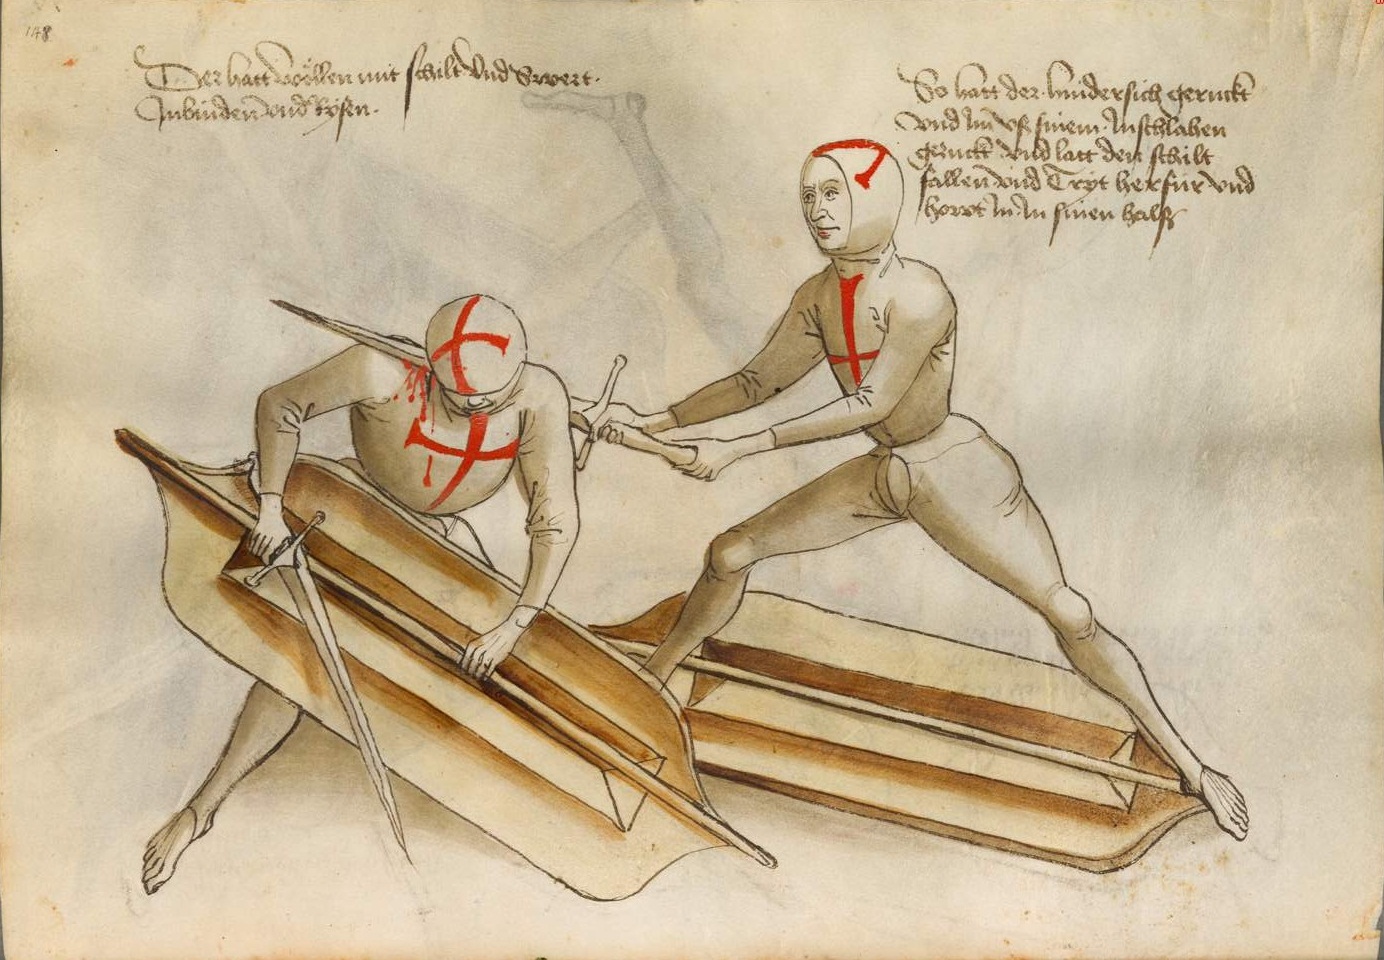 148
Der hatt wöllen mit schilt vnd Swert.
Inbinden vnd Rysen.
So hatt der hindersich geruckt
vnd Im vß sinem Anschlahen
geruckt vnd latt den schilt
fallen vnd Tryt herfür vnd
howt In In sinen halß